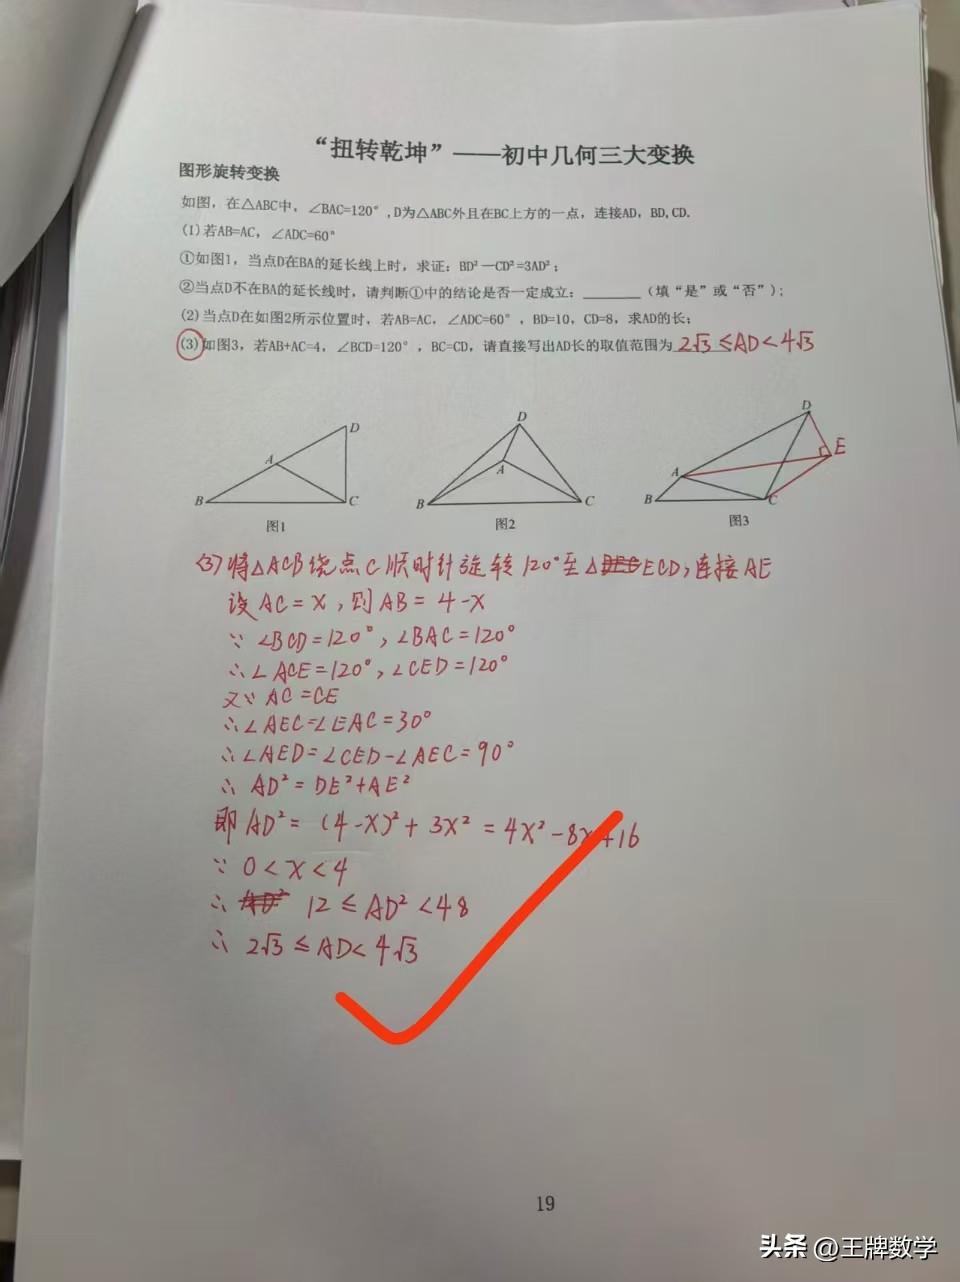 “扭转乾坤”——初中几何三大变换
图形旋转变换
如图，在△ABC中，∠BAC=120°,D为△ABC外且在BC上方的一点，连接AD，BD,CD.
(1)若AB=AC，∠ADC=60°
①如图1，当点D在BA的延长线上时，求证：BD²—CD²=3AD²；
②当点D不在BA的延长线时，请判断①中的结论是否一定成立：________（填“是”或“否”）;
(2)当点D在如图2所示位置时，若AB=AC，∠ADC=60°，BD=10，CD=8，求AD的长；
(3)如图3，若AB+AC=4，∠BCD=120°，BC=CD，请直接写出AD长的取值范围为 2√3 ≤AD<4√3
D
A
B
C
图1
D
A
B
C
图2
D
E
A
B
C
图3
(3)将△ACB绕点C顺时针旋转120°至△ECD,连接AE
设AC=x,则AB=4-x
∵∠BCD=120°,∠BAC=120°
∴∠ACE=120°,∠CED=120°
又∵AC=CE
∴∠AEC=∠EAC=30°
∴∠AED=∠CED-∠AEC=90°
∴AD²=DE²+AE²
即AD²=(4-x)²+3x²=4x²-8x+16
∵0<x<4
∴ 12≤AD²<48
∴ 2√3≤AD<4√3
19
头条 @王牌数学